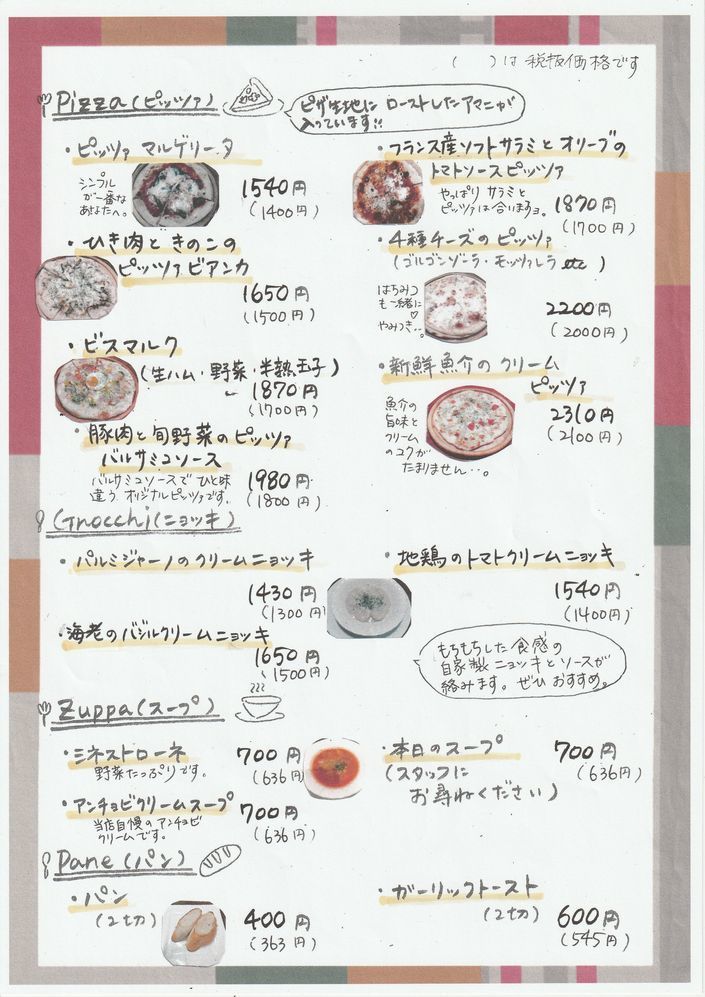 ( )は税抜価格です
Pizza(ピッツァ)
ピザ生地に ローストしたアマニが
入っています!!
・ピッツァ マルゲリータ
シンプル
が一番な
あなたへ。
1540円
(1400円)
・ひき肉ときのこの
ピッツァビアンカ
1650円
(1500円)
・ビスマルク
(生ハム・野菜・半熟玉子)
1870円
(1700円)
・豚肉と旬野菜のピッツァ
バルサミコソース
バルサミコソースで ひと味
違う オリジナルピッツァです。
1980円
(1800円)
・フランス産ソフトサラミとオリーブの
トマトソースピッツァ
やっぱり サラミと
ピッツァは合いますョ。
1870円
(1700円)
・4種チーズのピッツァ
(ゴルゴンゾーラ・モッツァレラ etc)
はちみつ
も一緒に
♡
やみつき…。
2200円
(2000円)
・新鮮魚介のクリーム
ピッツァ
魚介の
旨味と
クリーム
のコクが
たまりません…。
2310円
(2100円)
Gnocchi(ニョッキ)
・パルミジャーノのクリームニョッキ
1430円
(1300円)
・海老のバジルクリームニョッキ
1650円
(1500円)
・地鶏のトマトクリームニョッキ
1540円
(1400円)
もちもちした食感の
自家製ニョッキとソースが
絡みます。ぜひおすすめ。
Zuppa(スープ)
・ミネストローネ 700円
野菜たっぷりです。 (636円)
・アンチョビクリームスープ 700円
当店自慢のアンチョビ
クリームです。
(636円)
・本日のスープ 700円
(スタッフに (636円)
お尋ねください)
Pane(パン)
・パン
(2切) 400円
(363円)
・ガーリックトースト
(2切) 600円
(545円)